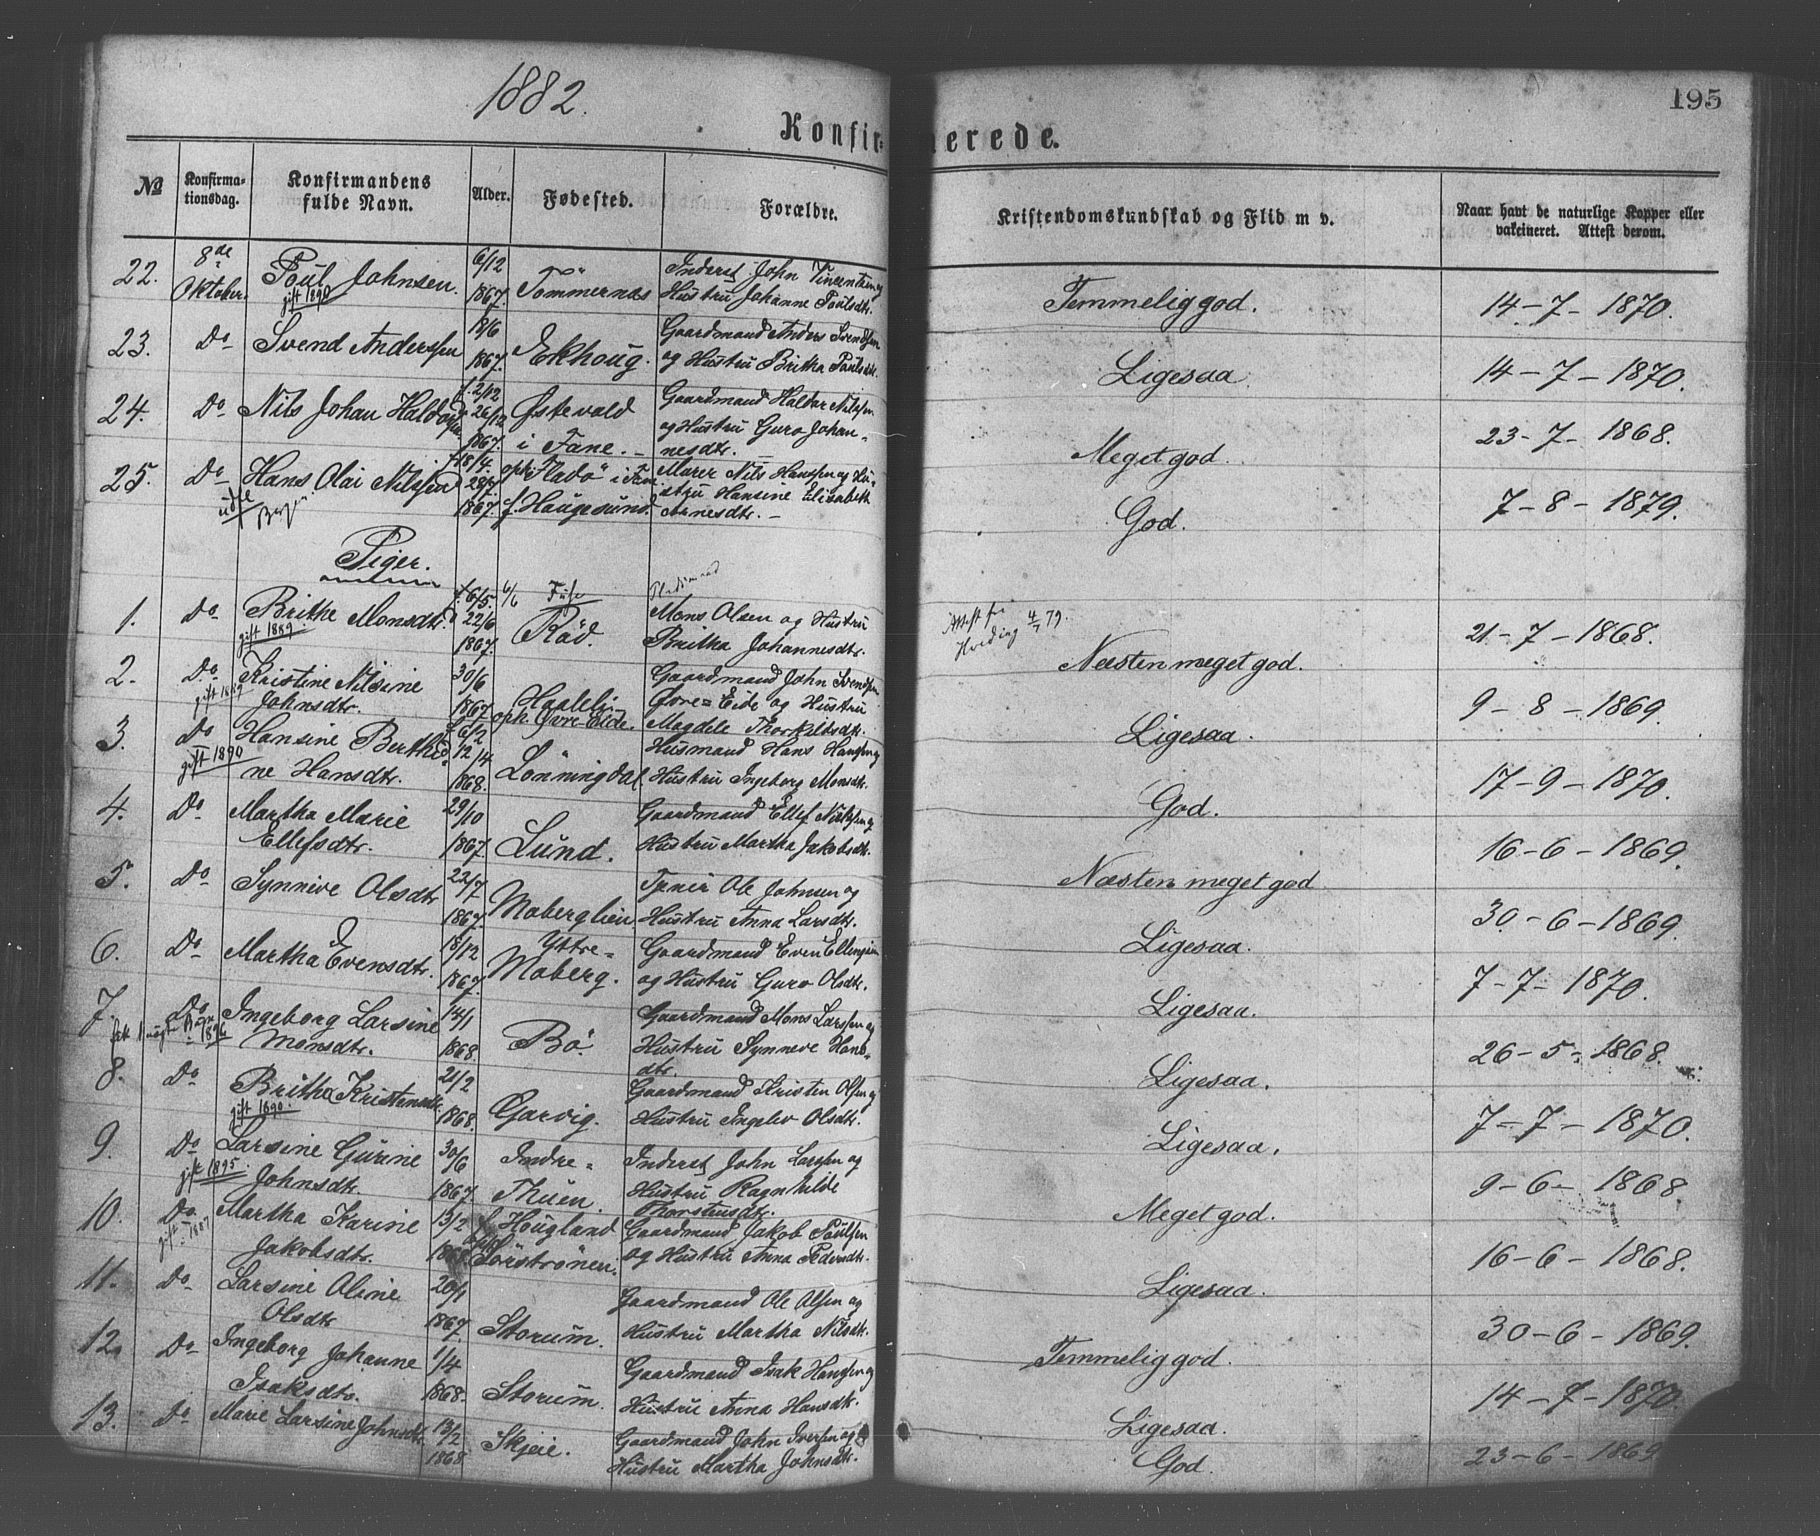 1882.
195
Konfir- merede.
No
Konfirma-
tionsdag.
Konfirmandens
fulde Navn.
Alder.
Fødested.
Forældre.
Kristendomskundskab og Flid m v.
Naar havt de naturlige Kopper eller
vakcineret. Attest derom.
22. 8de Oktober. Poul Johnsen. gift 1890 6/12 1867. Tömmernæs Inderst John Vincentsen og
Hustru Johanne Poulsdtr. Temmelig god. 14-7-1870.
23. Do Svend Anderssen 18/6 1867. Ekhoug. Gaardmand Anders Svendsen
og Hustru Britha Poulsdtr. Ligesaa 14-7-1870.
24. Do Nils Johan Haldorsen f 2/12 26/12 1867. Østevold
i Fane. Gaardmand Haldor Nilssen
og Hustru Guro Johan-
nesdtr. Meget god. 23-7-1868.
25. Do Hans Olai Nilssen f 18/4. 1867. oph. Fladö i
f. Haugesund. Murer Nils Hanssen og Hu-
stru Hansine Elisabeth
Arnesdtr. God. 7-8-1879.
Piger.
1. Do Brithe Monsdtr. gift 1889. f. 6/5. 6/6 22/6 1867. Fuse
Röd. Pladsmand
Mons Olsen og Hustru
Britha Johannesdtr. Attest fra
Hveding 4/7 79. Næsten meget god. 21-7-1868.
2. Do gift 1889 Kristine Nilsine
Johnsdtr. 30/6 1867.
oph. Øvre Eide. Gaardmand John Svendsen
Øvre=Eide og Hustru
Magdele Thorkildsdtr. Ligesaa. 9-8-1869.
3. Do gift 1890 Hansine Berthi-
ne Hansdtr. f 6/2 12/4 1868. Lönningdal Husmand Hans Hanssen og
Hustru Ingeborg Monsdtr. God. 17-9-1870.
4. Do Martha Marie
Ellefsdtr. 29/10 1867. Lund. Gaardmand Ellef Nielssen og
Hustru Martha Jakobsdtr. Næsten meget god 16-6-1869.
5. Do Synneve Olsdtr 22/7 1867. Moberglien Ole Johnsen og
Hustru Anna Larsdtr. Ligesaa. 30-6-1869.
6. Do Martha Evensdtr. 18/12 1867. Yttre=
Moberg. Gaardmand Even Ellingsen
og Hustru Guro Olsdtr. Ligesaa. 7-7-1870.
7. Do 1896 Ingeborg Larsine
Monsdtr. 14/1 1868. Bö. Gaardmand Mons Larssen og
Hustru Synneve Hans-
dtr. Ligesaa. 26-5-1868.
8. Do Britha Kristensdtr. gift 1890. 21/2 1868. Gjærvig. Gaardmand Kristen Olsen og
Hustru Ingelev Olsdtr. Ligesaa. 7-7-1870.
9. Do gift 1895 Larsine Gurine
Johnsdtr. 30/6 1867 Indre=
Thuen. Inderst John Larssen og
Hustru Ragnhilde
Thorstensdtr. Meget god. 9-6-1868
10. Do gift 1887 Martha Karine
Jakobsdtr. 13/2 1868. f. Hougland
Sörströnen. Gaardmand Jakob Poulsen
og Hustru Anna Pedersdtr. Ligesaa. 16-6-1868.
11. Do Larsine Oline
Olsdtr 20/1 1867. Storum. Gaardmand Ole Olsen og
Hustru Martha Nilsdtr. Temmelig god. 30-6-1869.
12. Do Ingeborg Johanne
Isaksdtr. 1/4 1868. Storum. Gaardmand Isak Hanssen og
Hustru Anna Hansdtr. Ligesaa. 14-7-1870.
13. Do Marie Larsine Johnsdtr. 13/2 1868 Skjeie. Gaardmand John Iversen og
Hustru Martha Johnsdtr. God. 23-6-1869